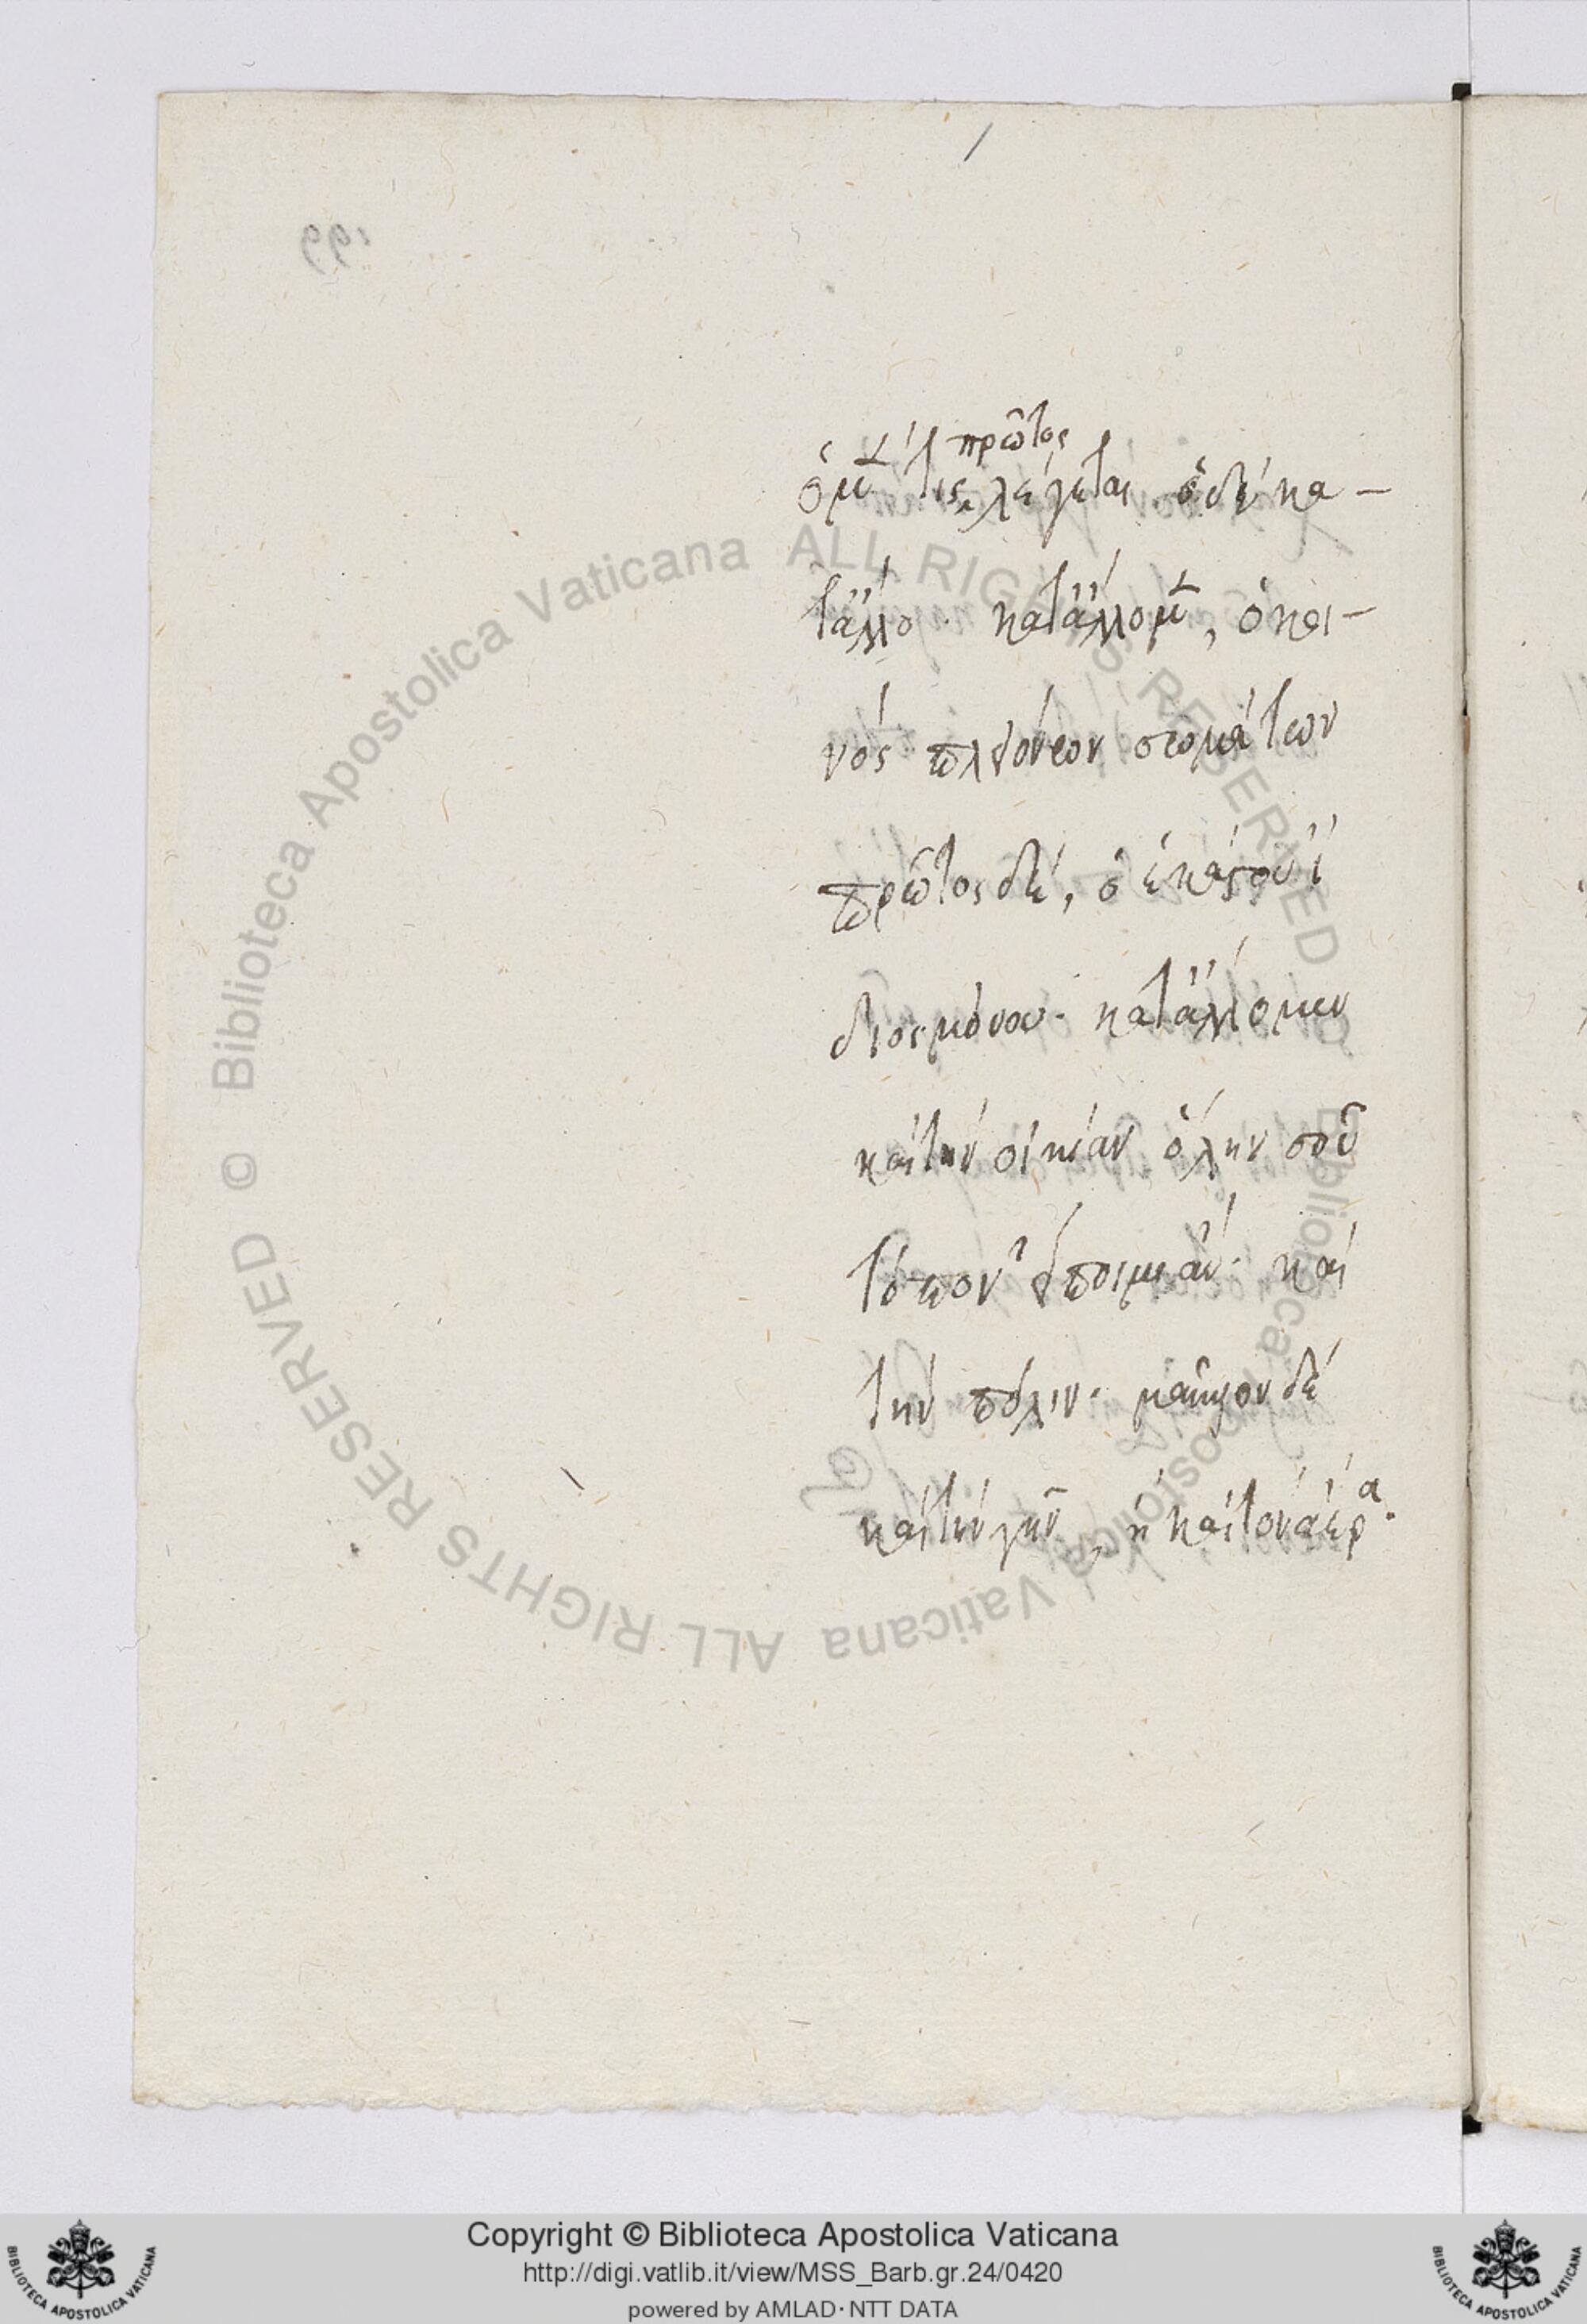 πρῶτος
ὁ μέν τις λέγεται ὁ δὲ κα-
τ' ἄλλο· κατ' ἄλλο μέν, ὁ κοι-
νὸς πλειόνων σωμάτων
πρῶτος δέ, ὁ ἑκάστου ἴ
διος μόνου· κατ' ἄλλο μεν
καὶ τὴν οἰκίαν ὅλην σοῦ
τόπον εἴποιμι ἄν· καὶ
τὴν πόλιν· μᾶλλον δὲ
καὶ τὴν γῆν, ἢ καὶ τὸν ἀέρα.
Biblioteca Apostolica Vaticana ALL RIGHTS RESERVED ©
Biblioteca Apostolica Vaticana ALL RIGHTS RESERVED ©
Copyright © Biblioteca Apostolica Vaticana
http://digi.vatlib.it/view/MSS_Barb.gr.24/0420
powered by AMLAD·NTT DATA
BIBLIOTECA APOSTOLICA VATICANA
BIBLIOTECA APOSTOLICA VATICANA